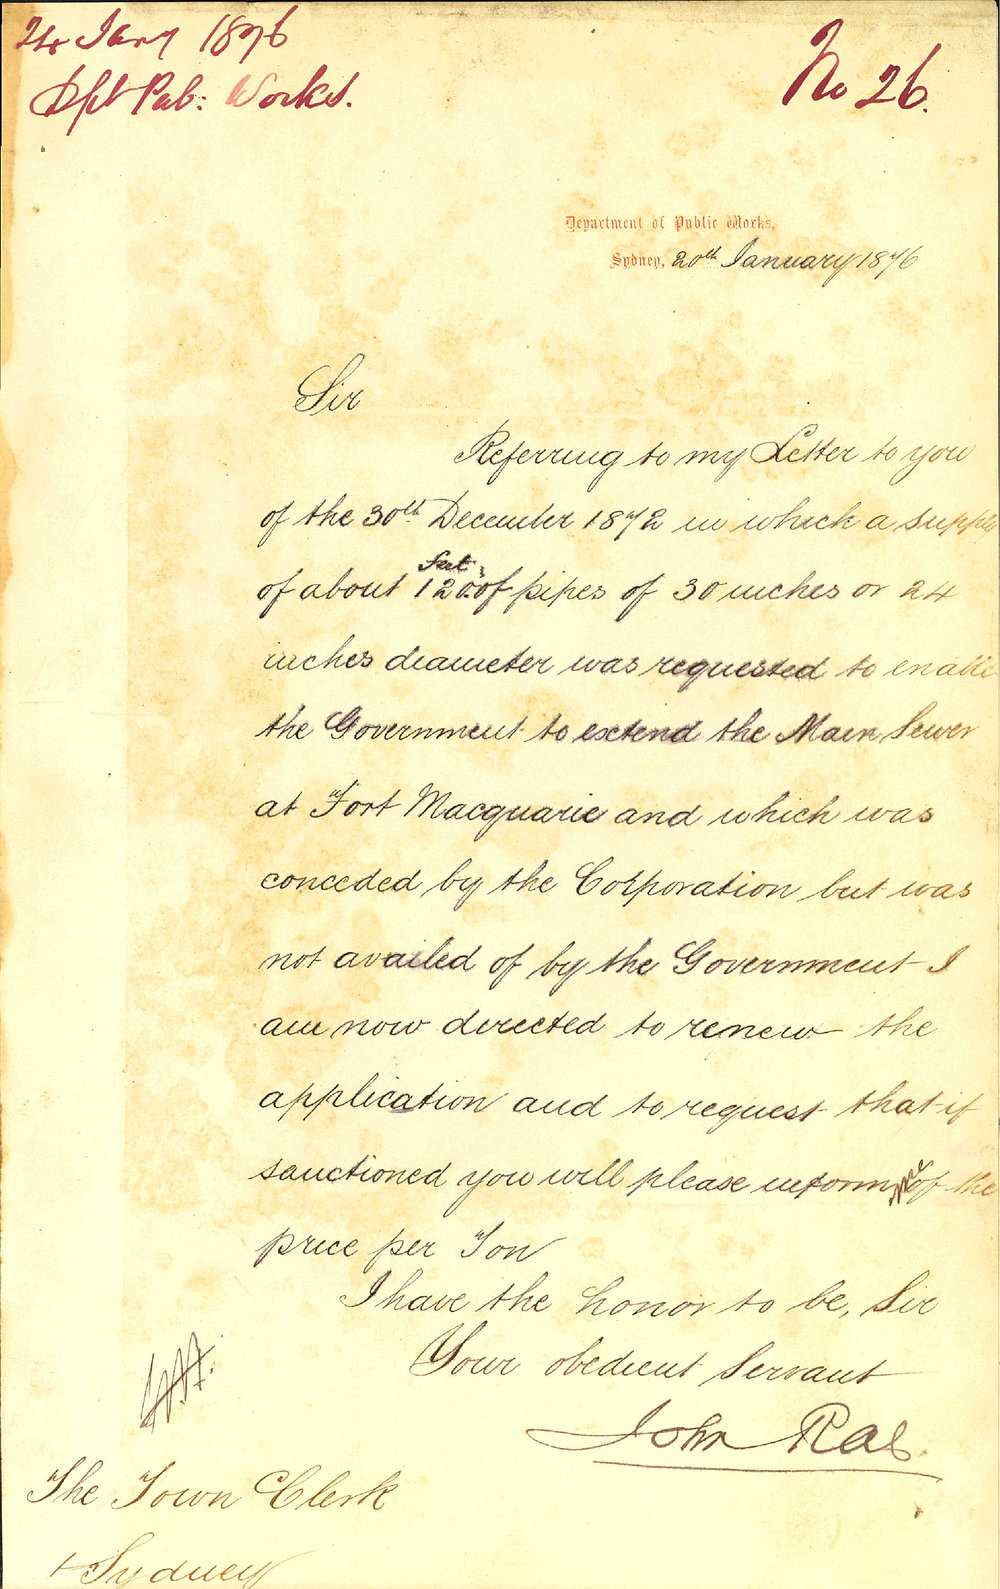 24 Jany 1876
Dpt Pub: Works.
No 26.
Department of Public Works,
Sydney, 20th January 1876
Sir
Referring to my Letter to you
of the 30th December 1872 in which a supply
feet
of about 1200 of pipes of 30 inches or 24
inches diameter was requested to enable
the Government to extend the Main Sewer
at Fort Macquarie and which was
conceded by the Corporation but was
not availed of by the Government I
am now directed to renew the
application and to request that if
sanctioned you will please inform me of the
price per Ton
I have the honor to be, Sir
Your obedient Servant
John Rae.
The Town Clerk
Sydney